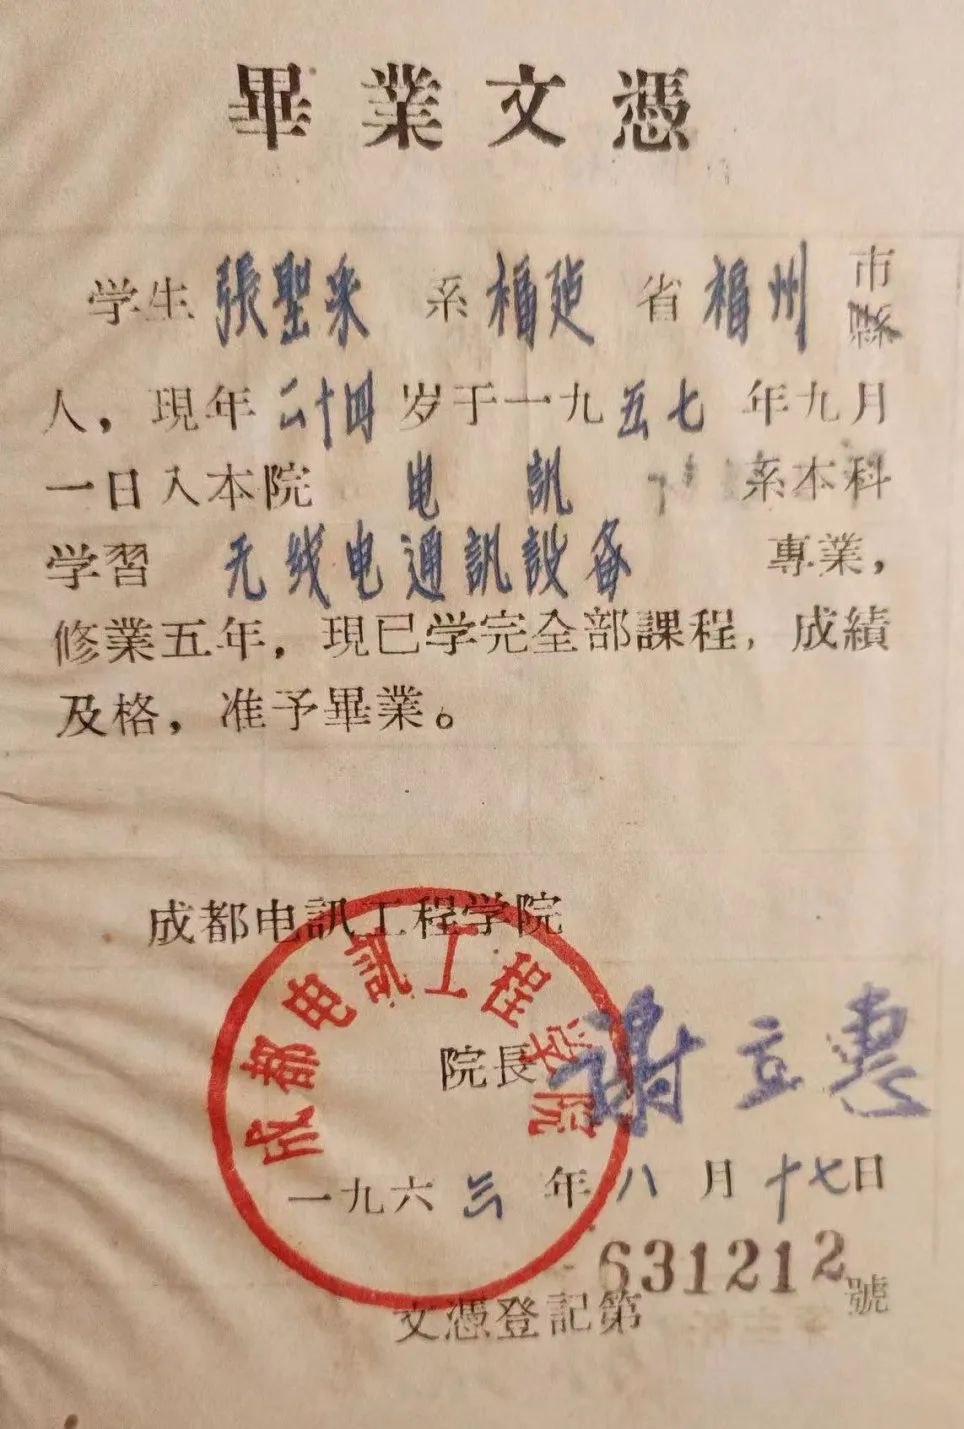 畢業文憑
学生 張聖来 系 福建 省 福州 市縣
人，現年 二十四 岁于一九五七 年九月
一日入本院 电訊 系本科
学習 无线电通訊設备 專業，
修業五年，現已学完全部課程，成績
及格，准予畢業。
成都电訊工程学院
成都电訊工程学院
院長 谢立惠
一九六三年八月十七日
631212
文憑登記第 號